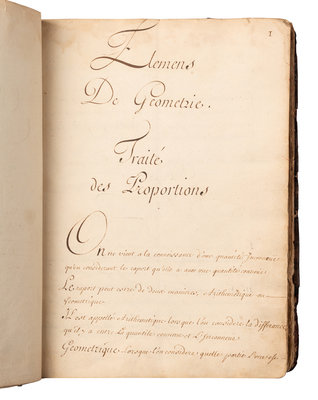 1
Elemens
De Geometrie.
Traité
des Proportions
On ne vient a la connoissance d'une quantité Inconnüe
qu'en considerant le raport qu'elle a avec une quantité connüe.
Le raport peut estre de deux manieres, Arithmétique ou
Geometrique.
Il est appellé Arithmetique lorsque l'on considere la differance
qu'il y a entre la quantité connüe et l'Inconnüe.
Geometrique, lorsque l'on considere quelle partie